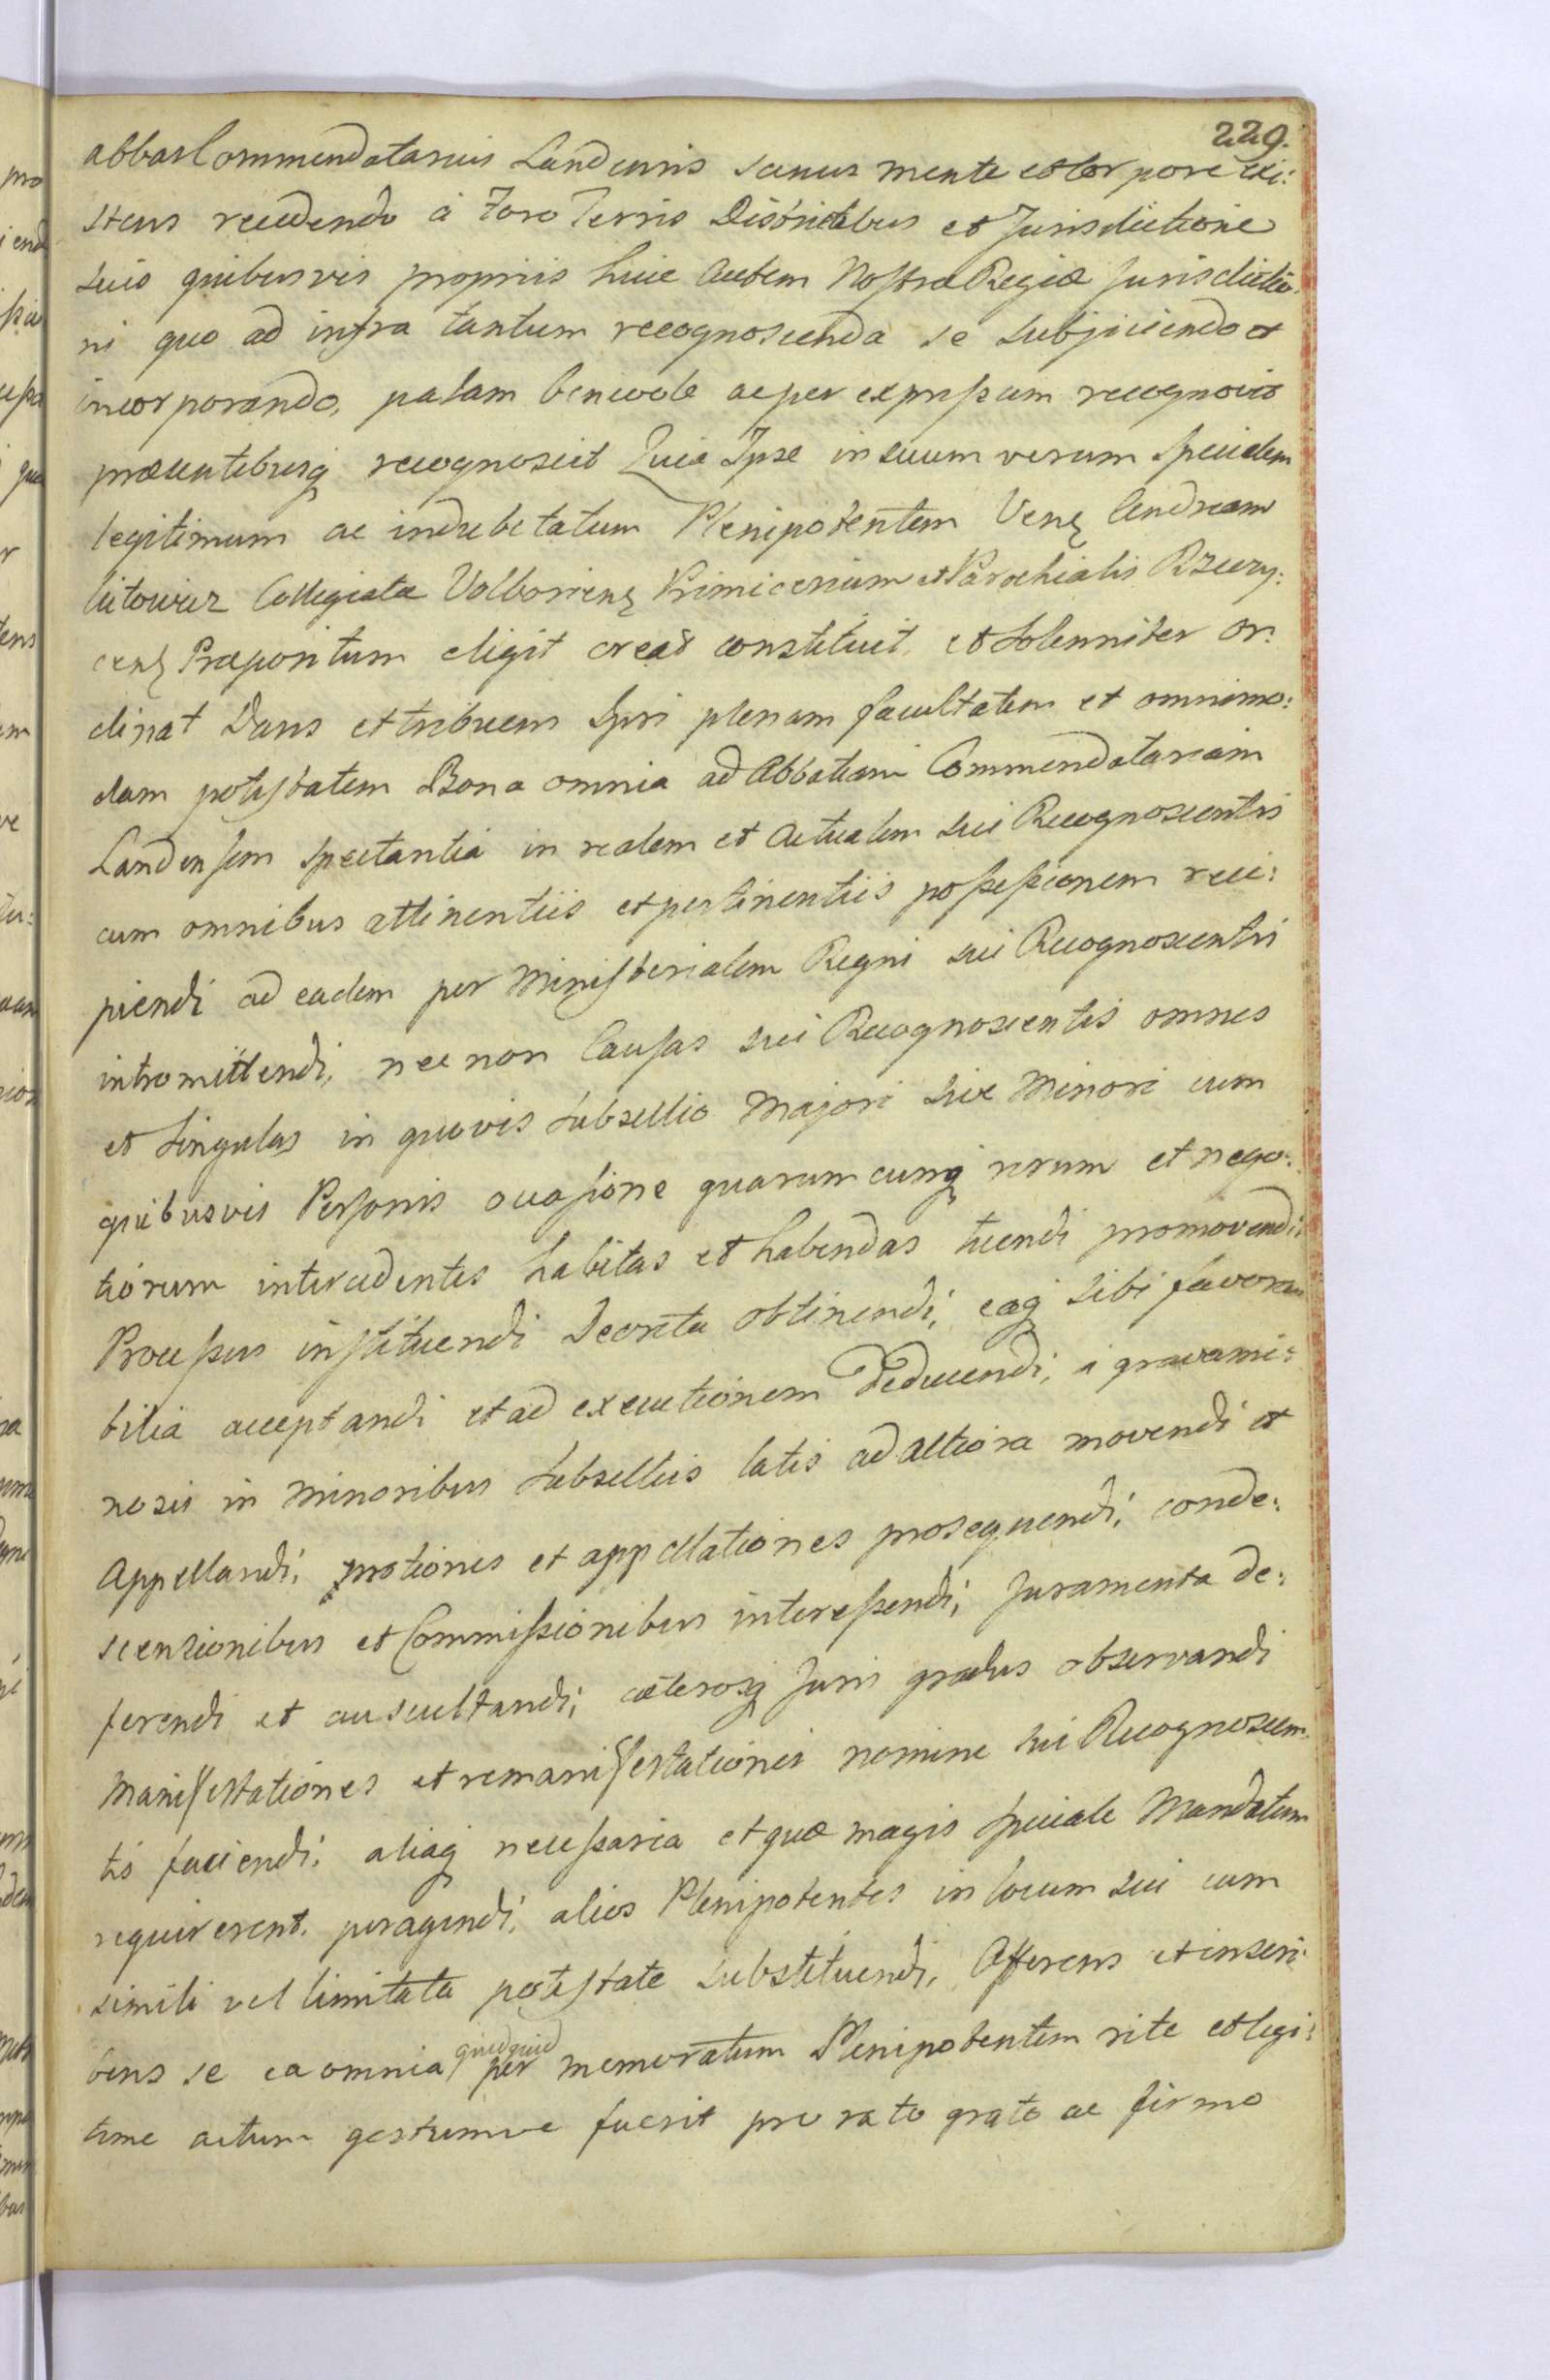 229.
abbas Commendatarius Landensis sanus mente et Corpore exi:
stens recedendo à Foro Terris Districtibus et Jurisdictione
suis quibusvis propriis huic autem Nostræ Regiæ Jurisdictio
ni quo ad infra tantum recognoscenda se subjiciendo et
incorporando, palam benevole ac per expressum recognovit
præsentibusq recognoscit Quia Ipse in suum verum specialem
legitimum ac indubitatum Plenipotentem Vene Andream
Collegiatæ Volboriens Primicerium et Parochialis
Præpositum eligit creat constituit et solenniter or:
dinat Dans et tribuens Ipsi plenam facultatem et omnimo:
dam potestatem Bona omnia ad Abbatiam Commendatariam
Landensem spectantia in realem et Actualem sui Recognoscentis
cum omnibus attinentiis et pertinentiis possessionem reci:
piendi ad eadem per Ministerialem Regni sui Recognoscentis
intromittendi, nec non Causas sui Recognoscentis omnes
et singulas in quovis subsellio Majori sive Minori cum
quibusvis Personis occasione quarumcunq rerum et nego:
tiorum intercedentes habitas et habendas tuendi promovendi:
Processus instituendi Decreta obtinendi, eaq sibi favora
bilia acceptandi et ad executionem deducendi, à gravami:
nosis in Minoribus subselliis latis ad altiora movendi et
Appellandi, motiones et appellationes prosequendi, conde:
scensionibus et Commissionibus interessendi, Juramenta de:
ferendi et auscultandi, cæterosq Juris gradus observandi
Manifestationes et remanifestationes nomine sui Recognoscen
tis faciendi, aliaq necessaria et quæ magis speciale Mandatum
requirerent. peragendi, alios Plenipotentes in locum sui cum
simili vel limitata potestate substituendi, Afferens et inscri:
bens se ea omnia quidquid per memoratum Plenipotentem rite et legi:
time actum gestumve fuerit pro rato grato ac firmo